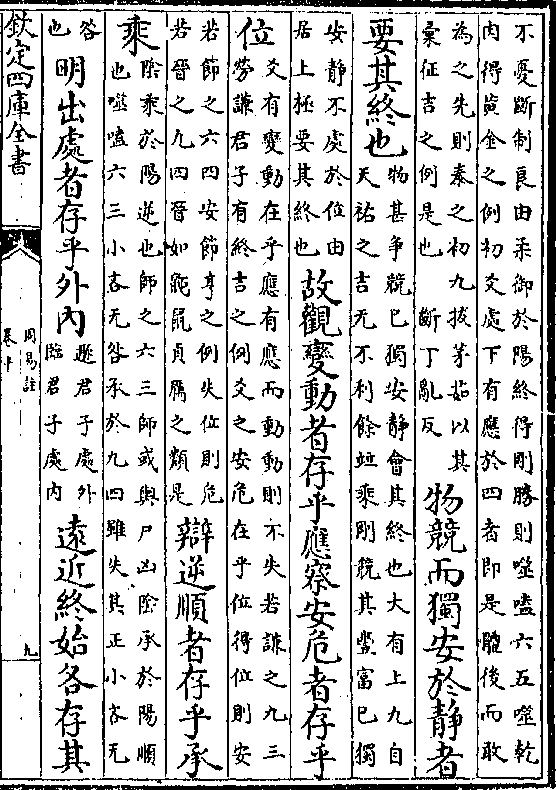 不憂斷制良由柔御於陽終得剛勝則噬嗑六五噬乾
肉得黃金之例初爻處下有應於四者即是體後而敢
為之先則泰之初九拔茅茹以其
彚征吉之例是也 斷丁亂反
物競而獨安於静者
要其終也
物甚争競已獨安静會其終也大有上九自
天祐之吉无不利餘竝乘剛競其豐富已獨
安静不處於位由
居上極要其終也
故觀變動者存乎應察安危者存乎
位
爻有變動在乎應有應而動動則不失若謙之九三
勞謙君子有終吉之例爻之安危在乎位得位則安
若節之六四安節亨之例失位則危
若晉之九四晉如鼫鼠貞厲之類是
辯逆順者存乎承
乘
陰乘於陽逆也師之六三師或與尸凶陰承於陽順
也噬嗑六三小吝无咎承於九四雖失其正小吝无
咎
也
明出處者存乎外内
遯君子處外
臨君子處内
遠近終始各存其
欽定四庫全書
周易註
卷十
九